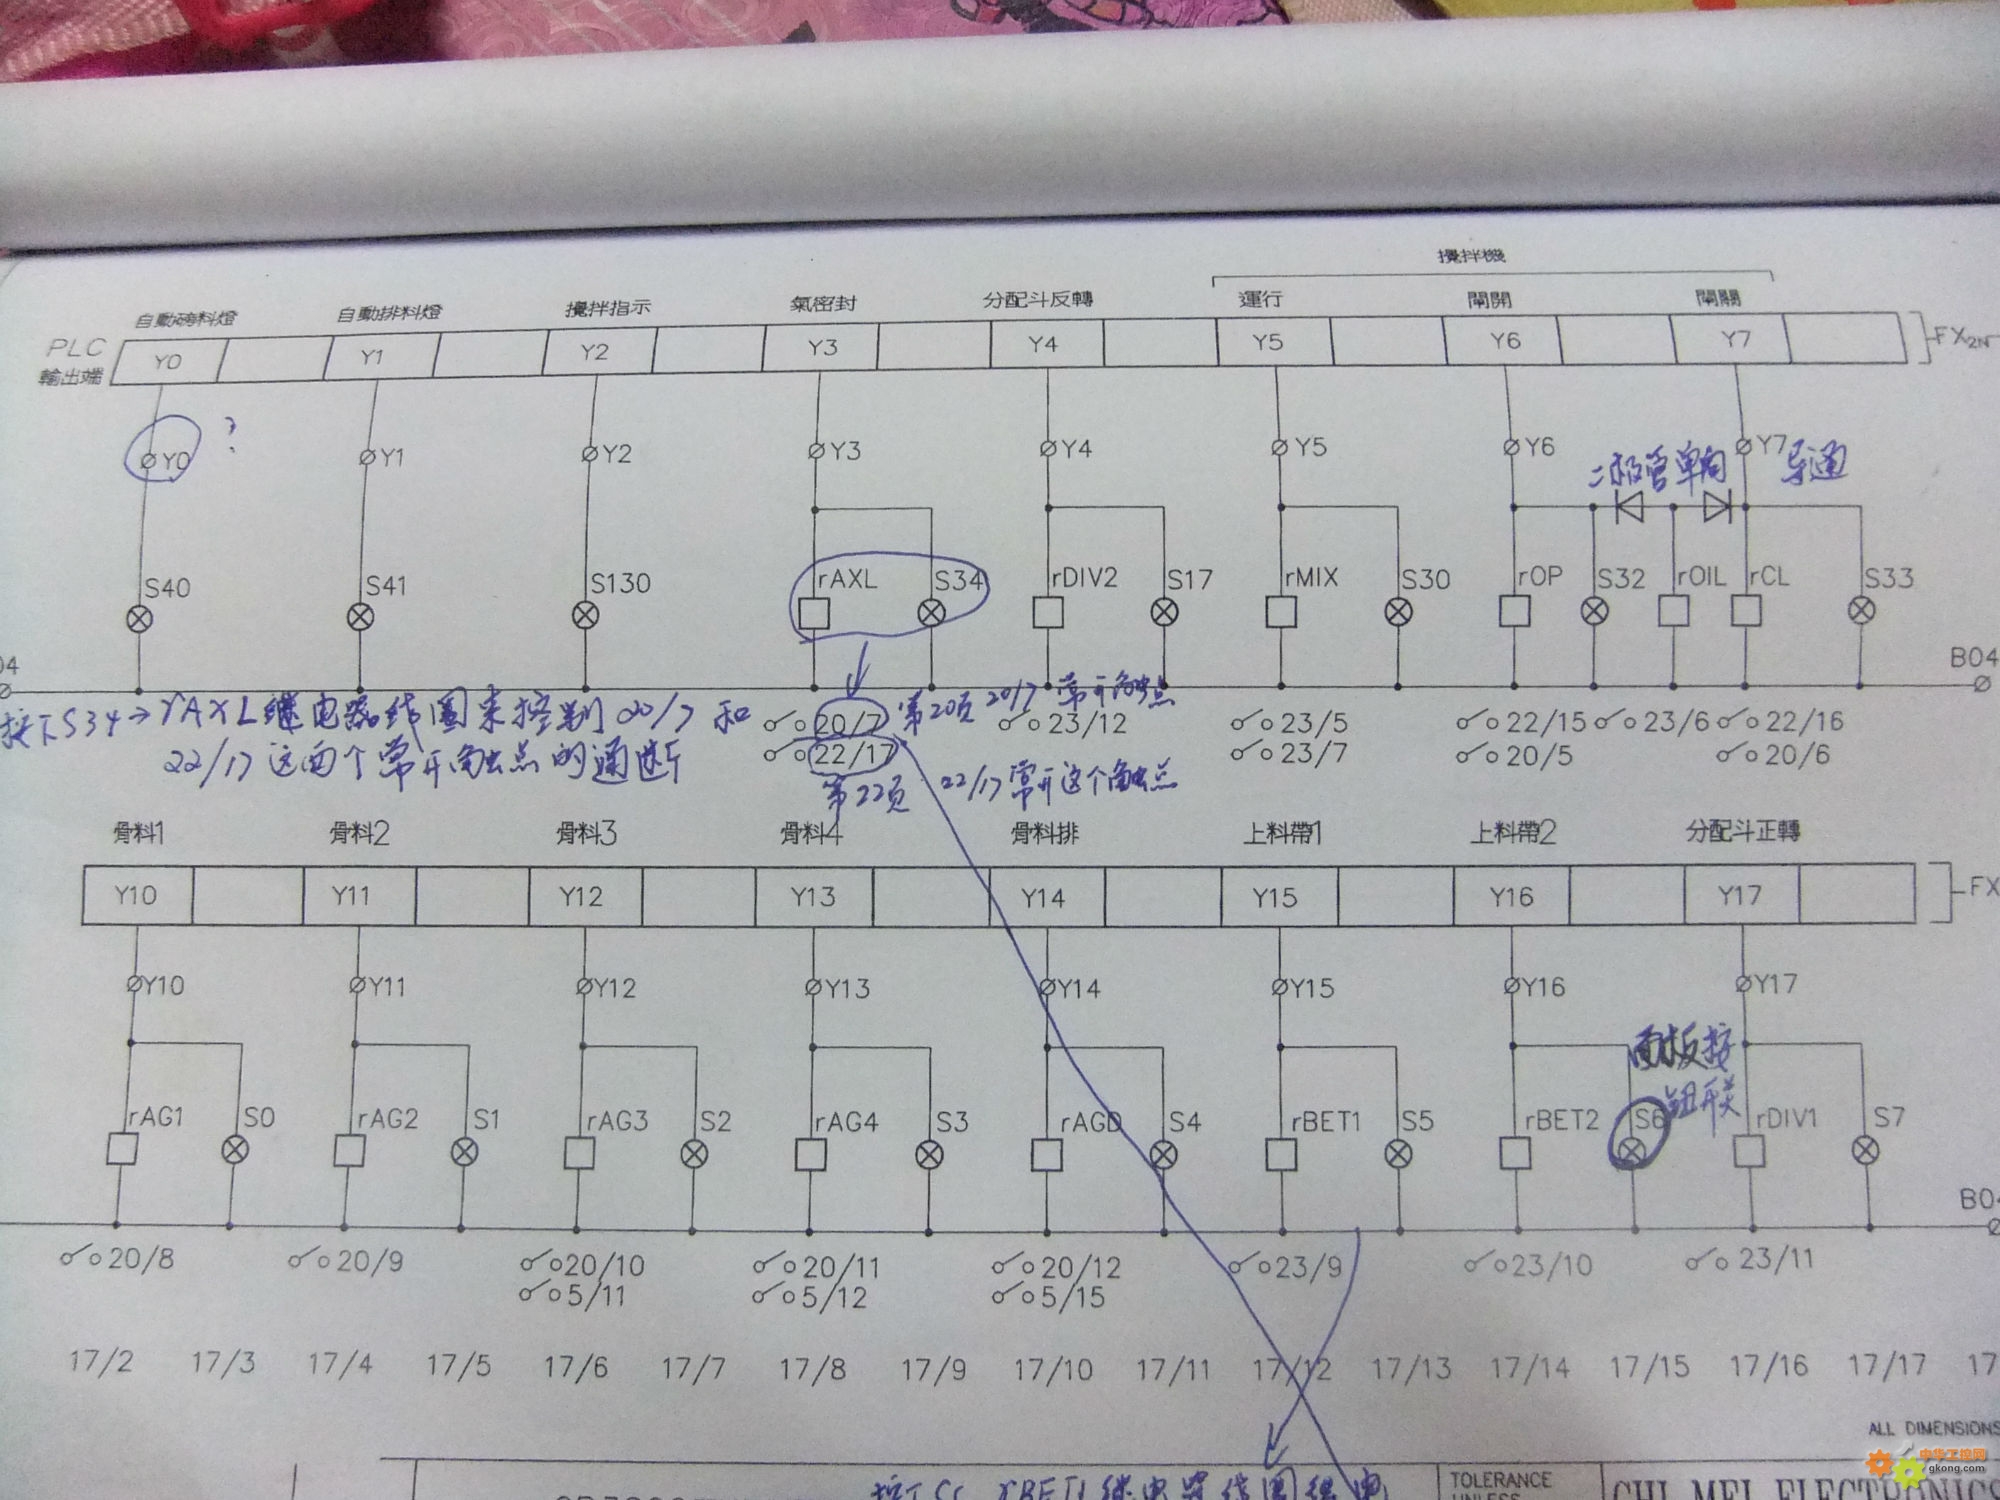 攪拌機
自動磅料燈 自動排料燈 攪拌指示 氣密封 分配斗反轉 運行 閘開 閘關
PLC
輸出端
Y0 Y1 Y2 Y3 Y4 Y5 Y6 Y7
FX2N
Y0 ? Y1 Y2 Y3 Y4 Y5 Y6 Y7
二极管单向 导通
S40 S41 S130 rAXL S34 rDIV2 S17 rMIX S30 rOP S32 rOIL rCL S33
04 B04
按下S34→rAXL继电器线圈来控制20/7和
22/17这两个常开触点的通断
20/7 第20页 20/7常开触点 23/12 23/5 22/15 23/6 22/16
22/17 23/7 20/5 20/6
第22页 22/17常开这个触点
骨料1 骨料2 骨料3 骨料4 骨料排 上料帶1 上料帶2 分配斗正轉
Y10 Y11 Y12 Y13 Y14 Y15 Y16 Y17
FX
Y10 Y11 Y12 Y13 Y14 Y15 Y16 Y17
面板按
钮开关
rAG1 S0 rAG2 S1 rAG3 S2 rAG4 S3 rAGD S4 rBET1 S5 rBET2 S6 rDIV1 S7
B04
20/8 20/9 20/10 20/11 20/12 23/9 23/10 23/11
5/11 5/12 5/15
17/2 17/3 17/4 17/5 17/6 17/7 17/8 17/9 17/10 17/11 17/12 17/13 17/14 17/15 17/16 17/17 17
ALL DIMENSIONS
中华工控网
gkong.com
TOLERANCE
CHI MEI ELECTRONICS
继电器线圈